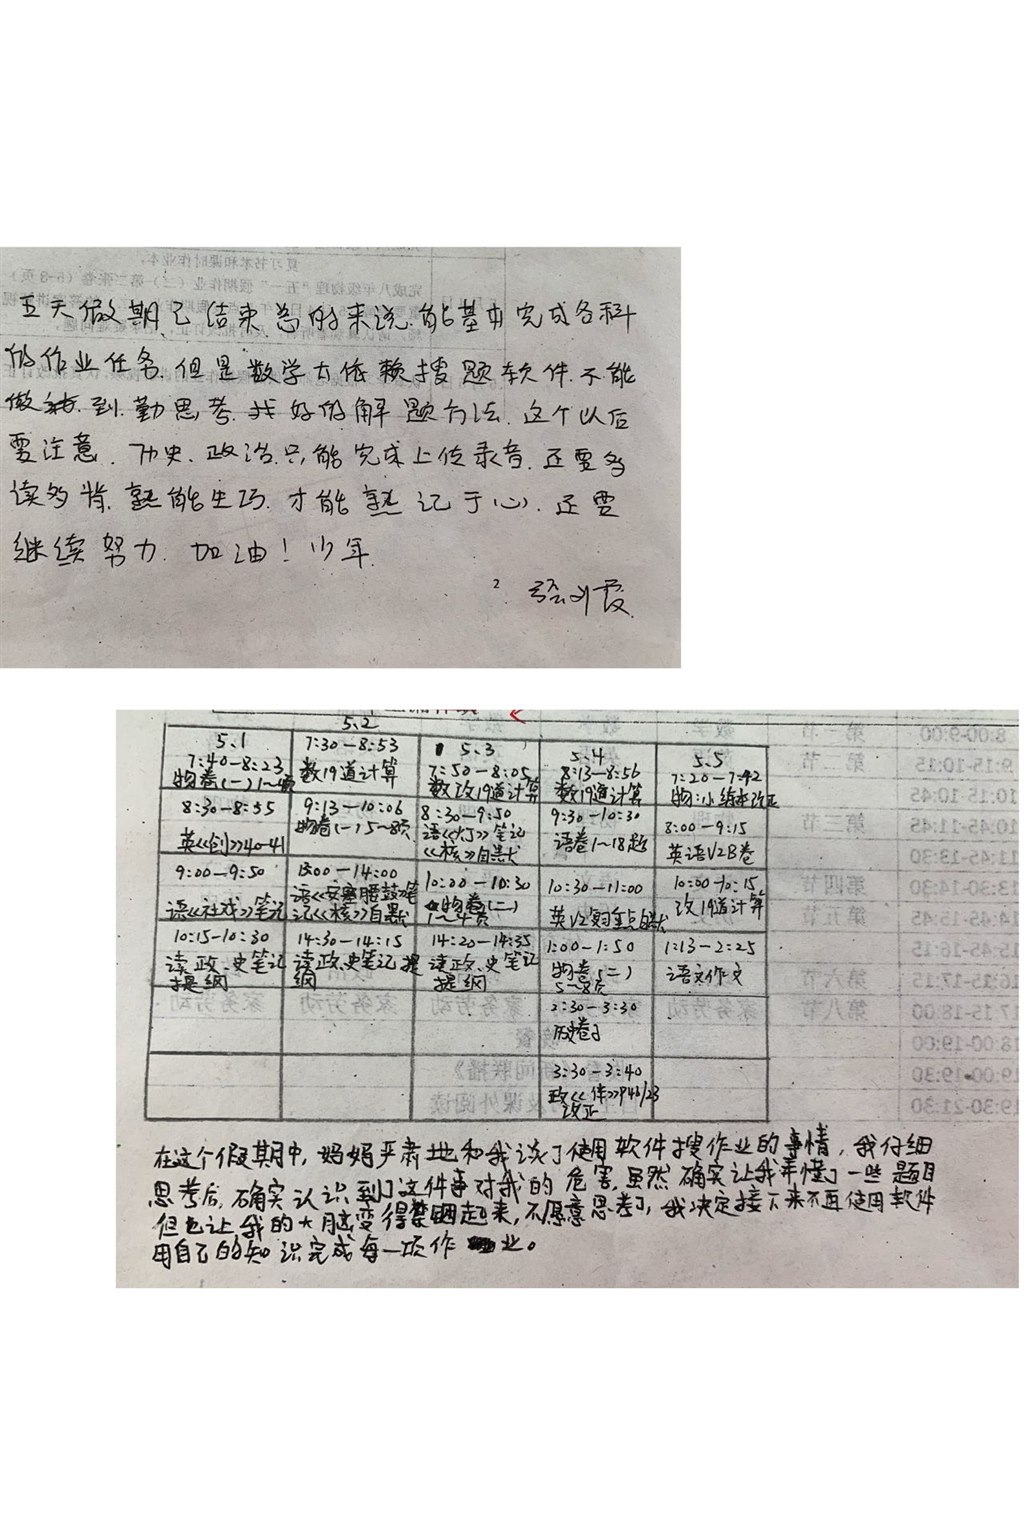 五天假期已结束总的来说.能基本完成各科
的作业任务.但是数学太依赖搜题软件.不能
做到.勤思考.找好的解题方法.这个以后
要注意.历史.政治.只能完成上传录音.还要多
读多背.熟能生巧.才能熟记于心.还要
继续努力.加油!少年.
5、1
7:40-8:23
物卷(一)1~4页
5、2
7:30-8:53
数19道计算
5、3
7:50-8:05
数改19道计算
5、4
8:13-8:56
数19道计算
5、5
7:20-7:42
物:小练本改正
8:30-8:55
英《创》40-41
9:13-10:06
物卷(一)5~8页
8:30-9:50
语《灯》笔记
《核》自默
9:30-10:30
语卷1~18题
8:00-9:15
英语V2B卷
9:00-9:50
语《社戏》笔记
13:00-14:00
语《安塞腰鼓》笔
记《核》自默
10:00-10:30
物卷(二)
1~4页
10:30-11:00
10:00-10:15
改19道计算
10:15-10:30
读政、史笔记
提纲
14:30-14:15
读政、史笔记提
纲
14:20-14:35
读政、史笔记
提纲
1:00-1:50
物卷(二)
5~8页
1:13-2:25
语文作文
2:30-3:30
历卷子
3:30-3:40
改正
在这个假期中,妈妈严肃地和我谈了使用软件搜作业的事情,我仔细
思考后,确实认识到了这件事对我的危害,虽然确实让我弄懂了一些题目
但也让我的大脑变得禁锢起来,不愿意思考了,我决定接下来不再使用软件
用自己的知识完成每一项作业。
8:00-9:00 第一节 数学
9:15-10:15 第二节
10:15-10:45
10:45-11:45 第三节
11:45-13:30
13:30-14:30 第四节
14:45-15:45 第五节
15:45-16:15
16:15-17:15 第六节
17:15-18:00 第八节 家务劳动 家务劳动 家务劳动 家务劳动
18:00-19:00
19:00-19:30
19:30-21:30